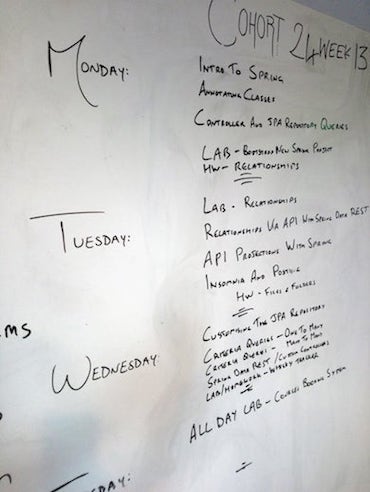 COHORT 24 WEEK 13
MONDAY:
INTRO TO SPRING
ANNOTATING CLASSES
CONTROLLER AND JPA REPOSITORY QUERIES
LAB - BOOTSTRAP NEW SPRING PROJECT
HW - RELATIONSHIPS
TUESDAY:
LAB - RELATIONSHIPS
RELATIONSHIPS VIA API WITH SPRING DATA REST
API PROJECTIONS WITH SPRING
INSOMNIA AND POSTING
HW - FILES & FOLDERS
MS
WEDNESDAY:
CUSTOMISING THE JPA REPOSITORY
CRITERIA QUERIES - ONE TO MANY
CRITERIA QUERIES - MANY TO MANY
SPRING DATA REST / CUSTOM CONTROLLERS
LAB/HOMEWORK - WHISKY TRACKER
ALL DAY LAB - COURSES BOOKING SYSTEM
DAY: